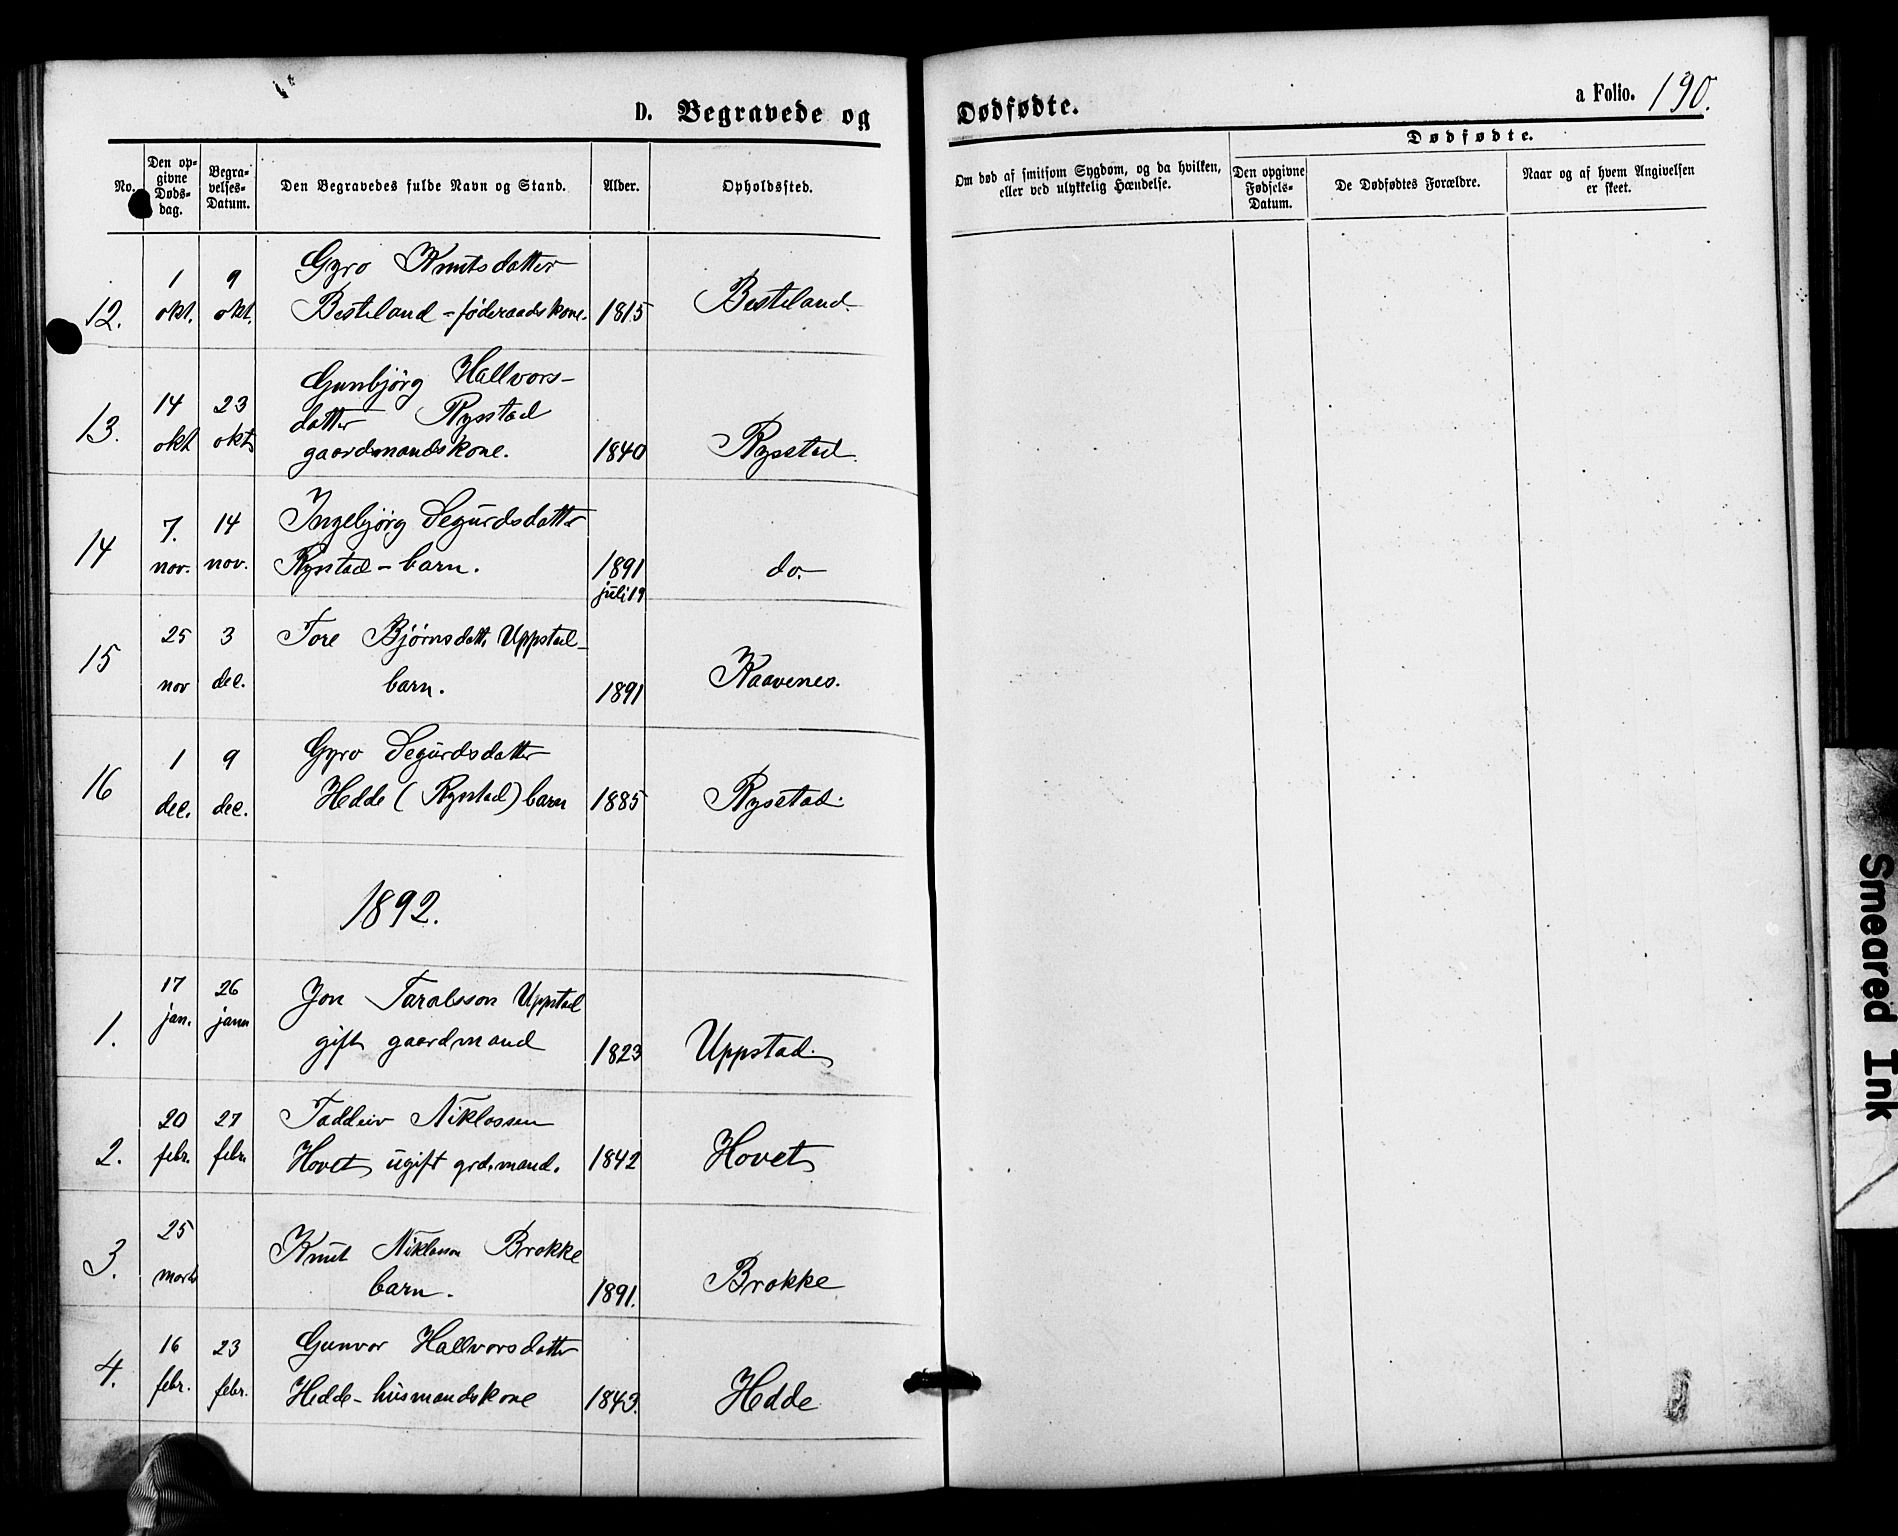 D. Begravede og Dødfødte.
a Folio. 190.
No.
Den op-
givne
Døds-
dag.
Begra-
velses-
Datum.
Den Begravedes fulde Navn og Stand.
Alder.
Opholdssted.
Om død af smitsom Sygdom, og da hvilken,
eller ved ulykkelig Hændelse.
Dødfødte.
Den opgivne
Fødsels-
Datum.
De Dødfødtes Forældre.
Naar og af hvem Angivelsen
er skeet.
12. 1 okt. 9 okt. Gyro Knutsdatter
Besteland - føderaadskone. 1815 Besteland.
13. 14 okt 23 okt. Gunbjörg Hallvors-
datter Rysstad
gaardmandskone. 1840 Rysstad.
14 7. nov. 14 nov. Ingebjörg Segurdsdatter
Rysstad - barn. 1891 do.
juli 19
15 25 nov 3 dec. Tore Bjørnsdatt. Uppstad -
barn. 1891 Kaavenes.
16 1 dec. 9 dec. Gyro Segurdsdatter
Hedde (Rysstad) barn 1885 Rysstad.
1892.
1. 17 jan. 26 janu Jon Taralsson Uppstad
gift gaardmand 1823 Uppstad.
2. 20 febr. 27 febr. Taddeiv Niklossen
Hovet ugift grd.mand. 1842 Hovet
3. 25 marts Knut Niklosson Brokke
barn. 1891. Brokke
4. 16 febr. 23 febr. Gunvor Hallvorsdatter
Hedde - husmandskone 1843. Hedde
Smeared Ink